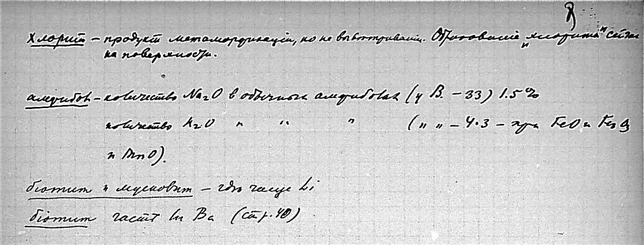 Хлорит – продукт метаморфизации, но не выветривания. Образование "хлорита"
на поверхности.
амфибол – количество Na2O в обычных амфиболах (у В. – 33) 1.5%
количество K2O " " " (" " – 4.3 – при FeO и Fe2O3
и MnO).
биотит и мусковит – где Li
биотит часто Ba (стр. 40)